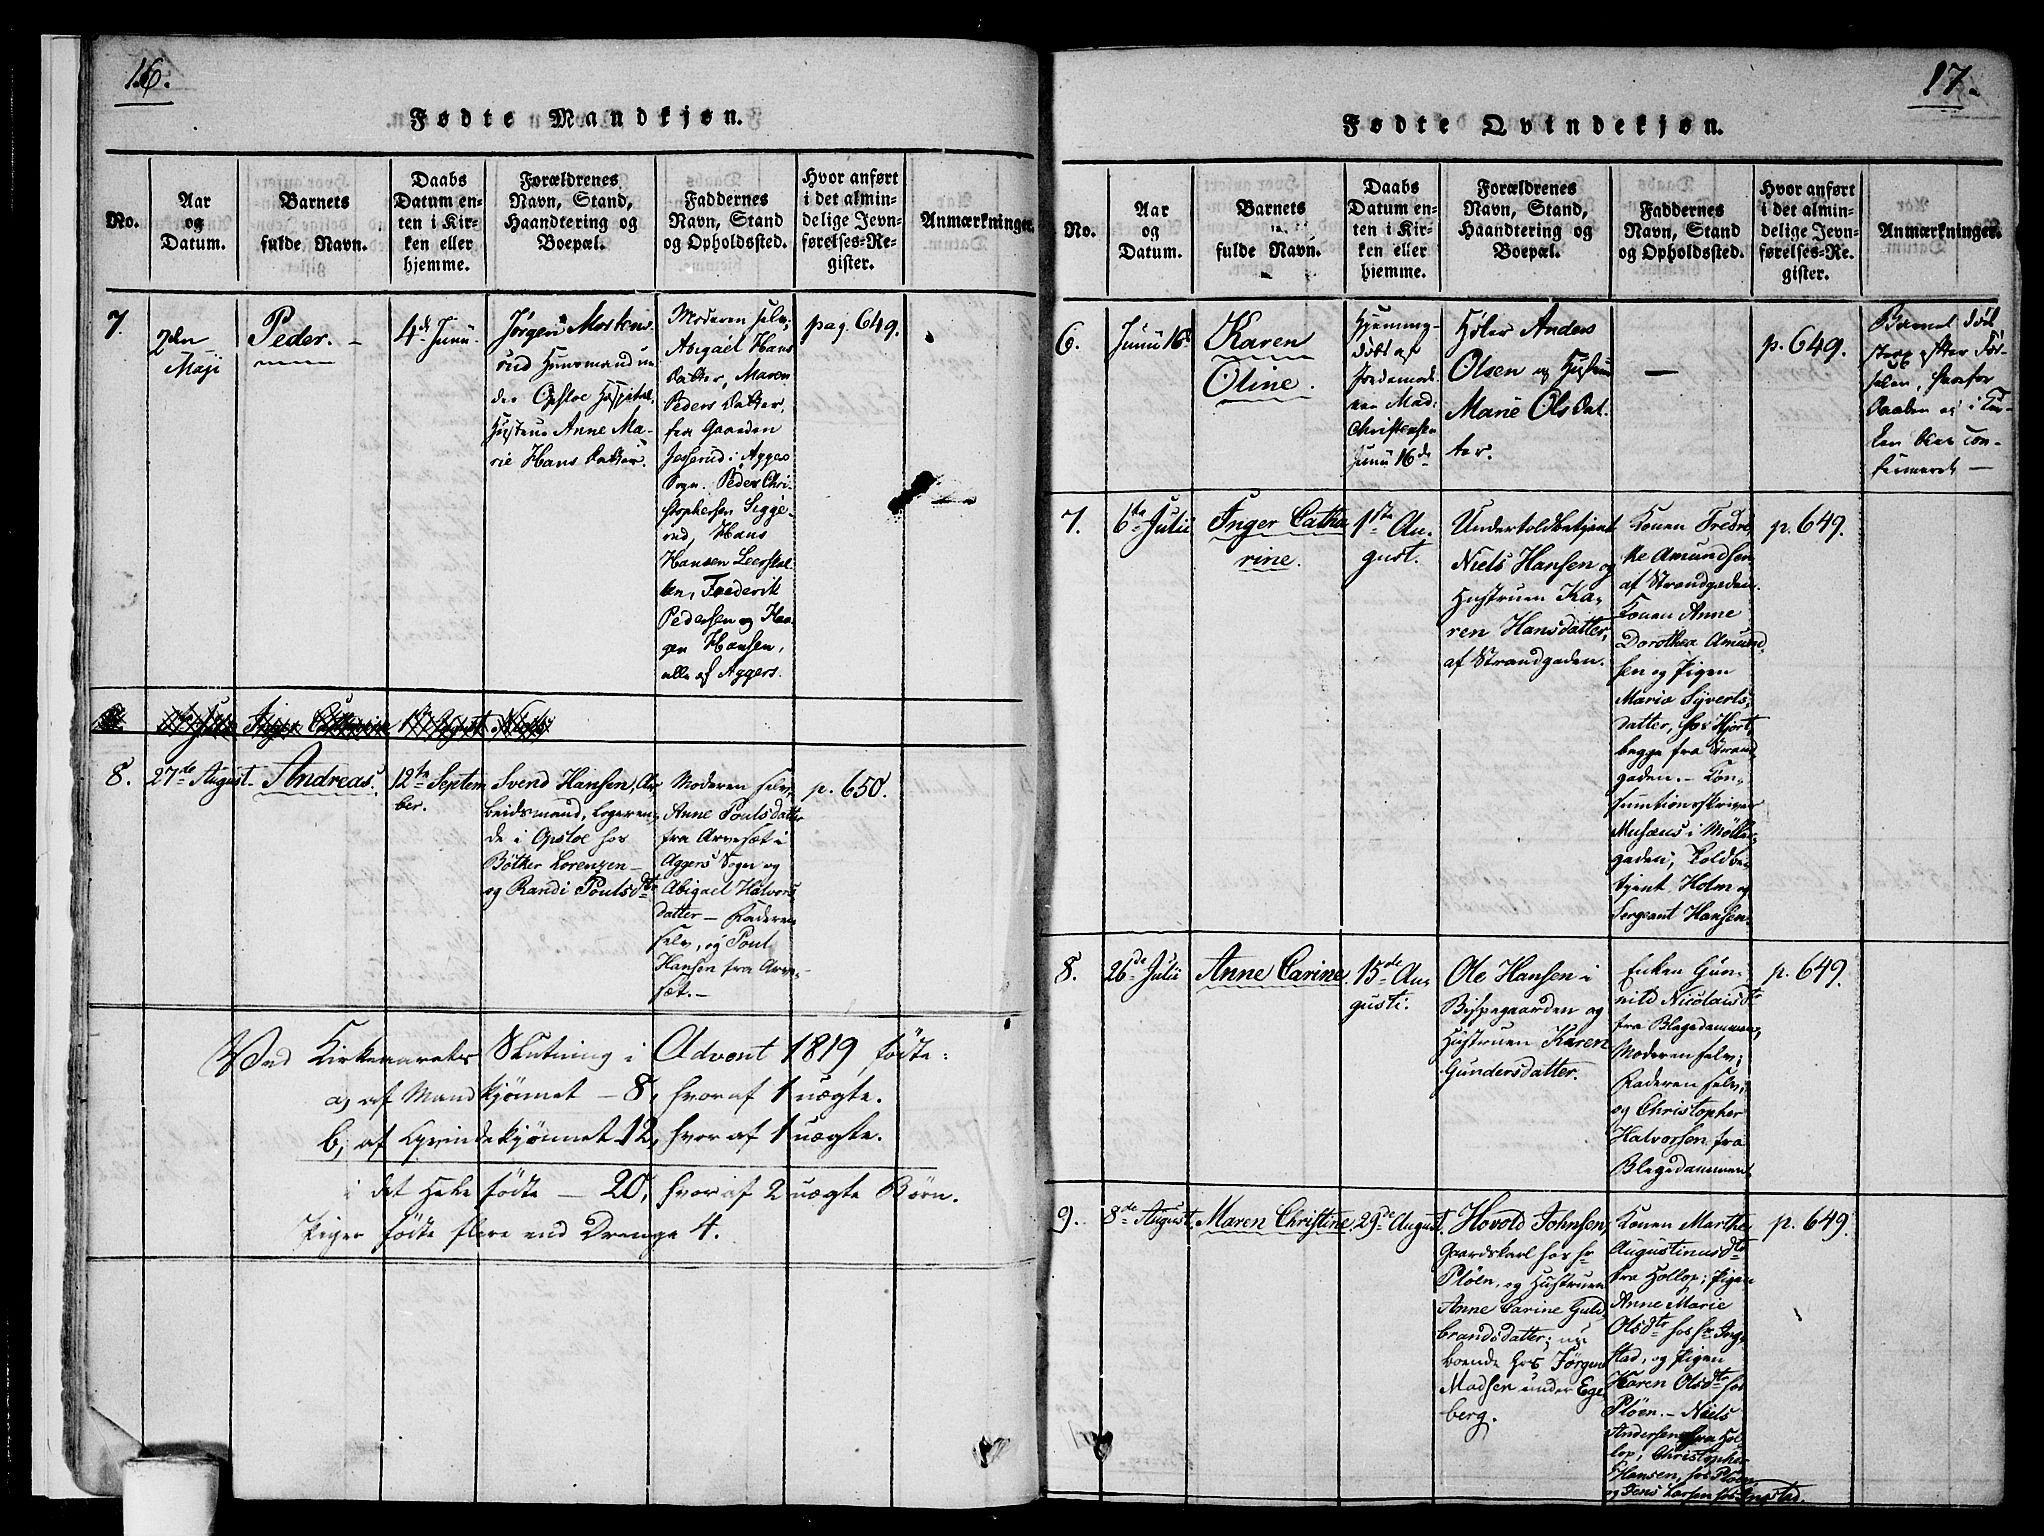 16.
Fødte Mandkjøn.
No.
Aar
og
Datum.
Barnets
fulde Navn.
Daabs
Datum en-
ten i Kir-
ken eller
hjemme.
Forældrenes
Navn, Stand,
Haandtering og
Boepæl.
Faddernes
Navn, Stand
og Opholdssted.
Hvor anført
i det almin-
delige Jevn-
førelses-Re-
gister.
Anmærkninger.
7.
2den
Maji
Peder.
4de Junii
Jørgen Mostens
rud Huusmand un
der Opsloe Hospital
Hustrue Anne Ma-
rie Hans Datter.
Moderen selv,
Abigael Hans
Datter, Maren
Peders Datter,
fra Gaarden
i Agges
Sogn. Peder Chri-
stophersen Sigge-
rud, Hans
Hansen Leerskal-
len, Frederik
Pedersen og
Hansen,
alle af Aggers.
pag. 649.
8.
27de August.
Andreas.
12te Septem
ber.
Svend Hansen, Ar-
beidsmand, logeren-
de i Opsloe hos
Bøtker Lorenzen
og Randi Poulsdtr
Moderen selv,
Anne Poulsdatter
fra Arvesæt i
Aggers Sogn og
Abigael Halvors
datter — Faderen
selv, og Poul
Hansen fra Arve-
sæt. —
p. 650.
Ved Kirkeaarets Slutning i Advent 1819, fødte:
a, af Mandkjønnet — 8, hvoraf 1 uægte.
b, af Qvindekjønnet 12, hvoraf 1 uægte.
i det Hele fødte — 20, hvoraf 2 uægte Børn.
Piger fødte flere end Drenge 4.
17.
Fødte Qvindekjøn.
No.
Aar
og
Datum.
Barnets
fulde Navn.
Daabs
Datum en-
ten i Kir-
ken eller
hjemme.
Forældrenes
Navn, Stand,
Haandtering og
Boepæl.
Faddernes
Navn, Stand
og Opholdssted.
Hvor anført
i det almin-
delige Jevn-
førelses-Re-
gister.
Anmærkninger.
6.
Junii 16de
Karen
Oline.
Hjemme-
døbt af
Jordemode-
ren Mad:
Christensen
Junii 16de
Anders
Olsen og Hustrue
Marie Ols Dat-
ter.
—
p. 649.
Barnet døde
strax efter Fød-
selen, hvorfor
Daaben ei i Kir-
ken blev con-
firmeret —
7.
6te Julii
Inger Catha
rine.
1ste Au-
gust.
Undertoldbetjent
Niels Hansen og
Hustruen Ka-
ren Hansdatter,
af Strandgaden.
Konen Fredri-
ke Amundsen
af Strandgaden.
Konen Anne
Dorothea Amund-
sen og Pigen
Maria Syverts-
datter, hos Hjort,
begge fra Strand-
gaden. — Con-
sumtionsskriver
Musæus i Møller-
gaden, Toldbe-
tjent Holm og
Sergeant Hansen.
p. 649.
8.
26de Julii
Anne Carine.
15de Au-
gusti.
Ole Hansen i
Bispegaarden og
Hustruen Karen
Gundersdatter.
Enken Gun-
nild Nicolaisdtr
fra Blegedammen,
Moderen selv,
Faderen selv,
og Christopher
Halvorsen fra
Blegedammen
p. 649.
9.
8de August.
Maren Christine
29de August.
Hovold Johnsen,
Gaardskarl hos Hr
Pløen, og Hustruen
Anne Carine Guld-
brandsdatter, nu
boende hos Jørgen
Madsen under Ege-
berg.
Konen Marthe
Augustinusdtr
fra Hollop; Pigen
Anne Marie
Olsdtr hos Hr. Ing-
stad, og Pigen
Karen Olsdtr hos
Pløen. — Niels
Andersen fra Hol-
lop, Christopher
Hansen, hos Pløen
og Jens Larsen hos Ingstad.
p. 649.